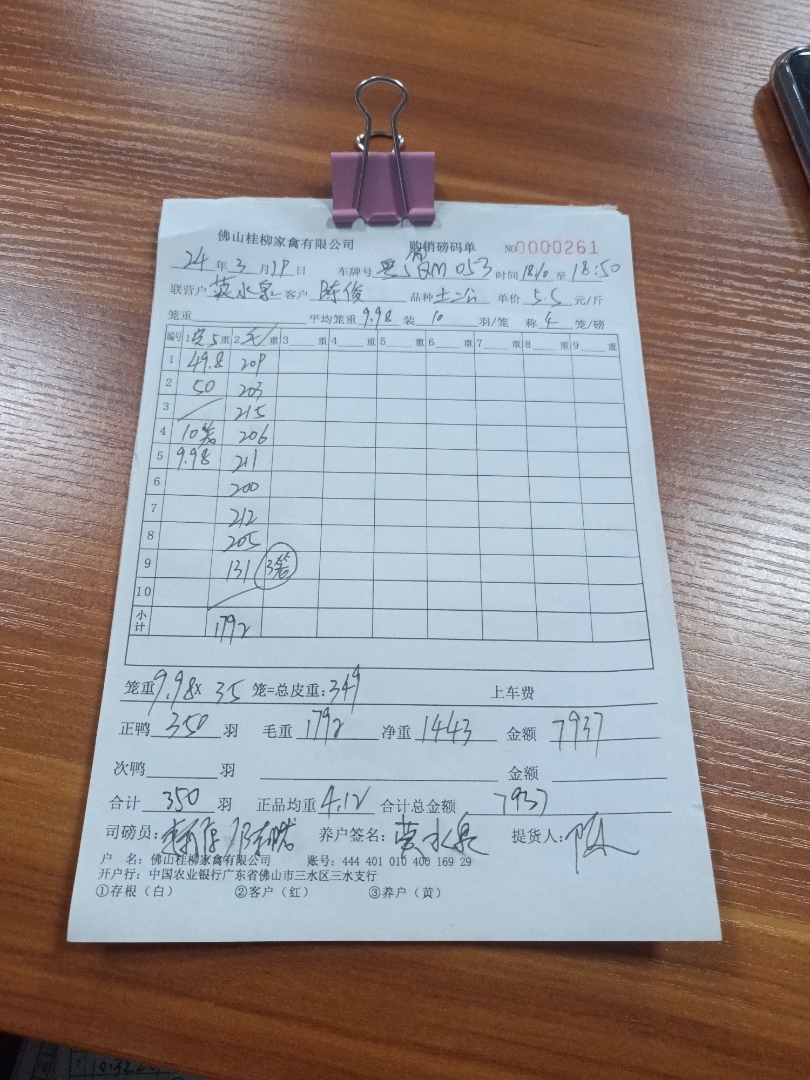 佛山桂柳家禽有限公司 购销磅码单 NO0000261
24年3月19日 车牌号 QM053 时间 至18:50
联营户 水泉 客户 陈俊 品种 土二 单价5.5元/斤
笼重 平均笼重9.98 装10羽/笼 称4笼/磅
编号 1空5重 2毛重 3重 4重 5重 6重 7重 8重 9重
1 49.8 209
2 50 203
3 215
4 10笼 206
5 9.98 211
6 200
7 212
8 205
9 131 3笼
10
小计 1792
笼重9.98×35笼=总皮重:349 上车费
正鸭350羽 毛重1792 净重1443 金额7937
次鸭羽 金额
合计350羽 正品均重4.12 合计总金额7937
司磅员: 养户签名: 水泉 提货人:
户 名: 佛山桂柳家禽有限公司 账号: 444 401 010 400 169 29
开户行: 中国农业银行广东省佛山市三水区三水支行
①存根（白） ②客户（红） ③养户（黄）